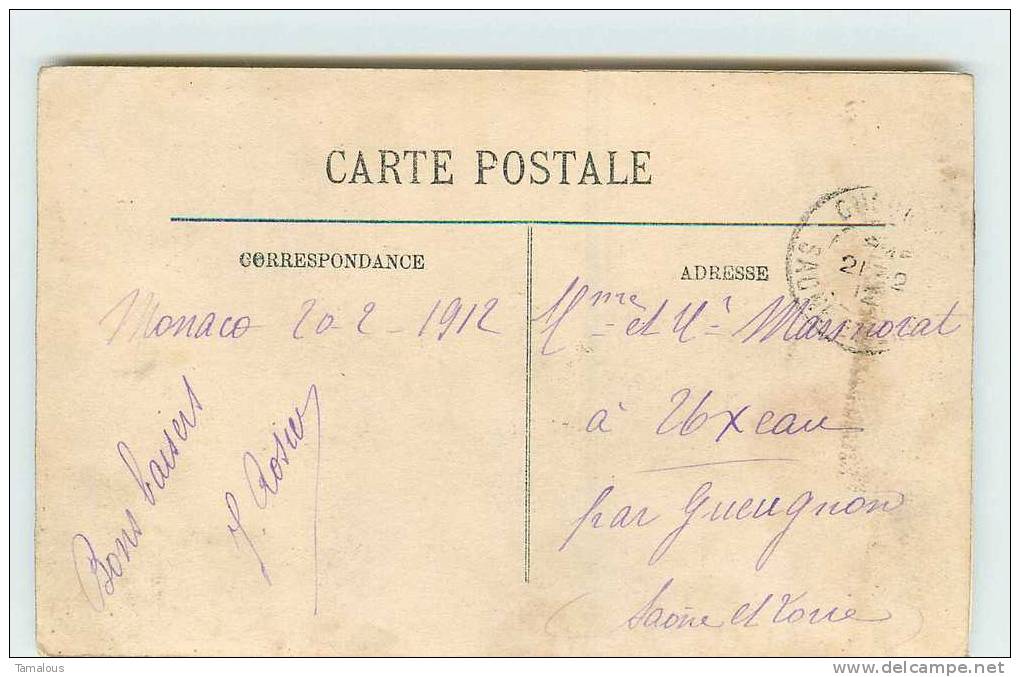 CARTE POSTALE
CORRESPONDANCE
Monaco 20-2-1912
Bons baisers
J. Rosier
ADRESSE
Mme et Mr
à Uxeau
par Gueugnon
(Saône et Loire
21
Tamalous
www.delcampe.net